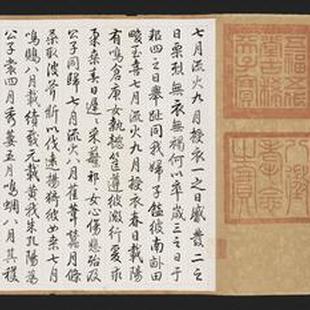 五福五代堂古稀天子寶
八徵耄念之寶
七月流火九月授衣一之日觱發二之
日栗烈無衣無褐何以卒歲三之日于
耜四之日舉趾同我婦子饁彼南畝田
畯至喜七月流火九月授衣春日載陽
有鳴倉庚女執懿筐遵彼微行爰求
柔桑春日遲〻采蘩祁〻女心傷悲殆及
公子同歸七月流火八月萑葦蠶月條
桑取彼斧斨以伐遠揚猗彼女桑七月
鳴鵙八月載績載玄載黃我朱孔陽為
公子裳四月秀葽五月鳴蜩八月其穫